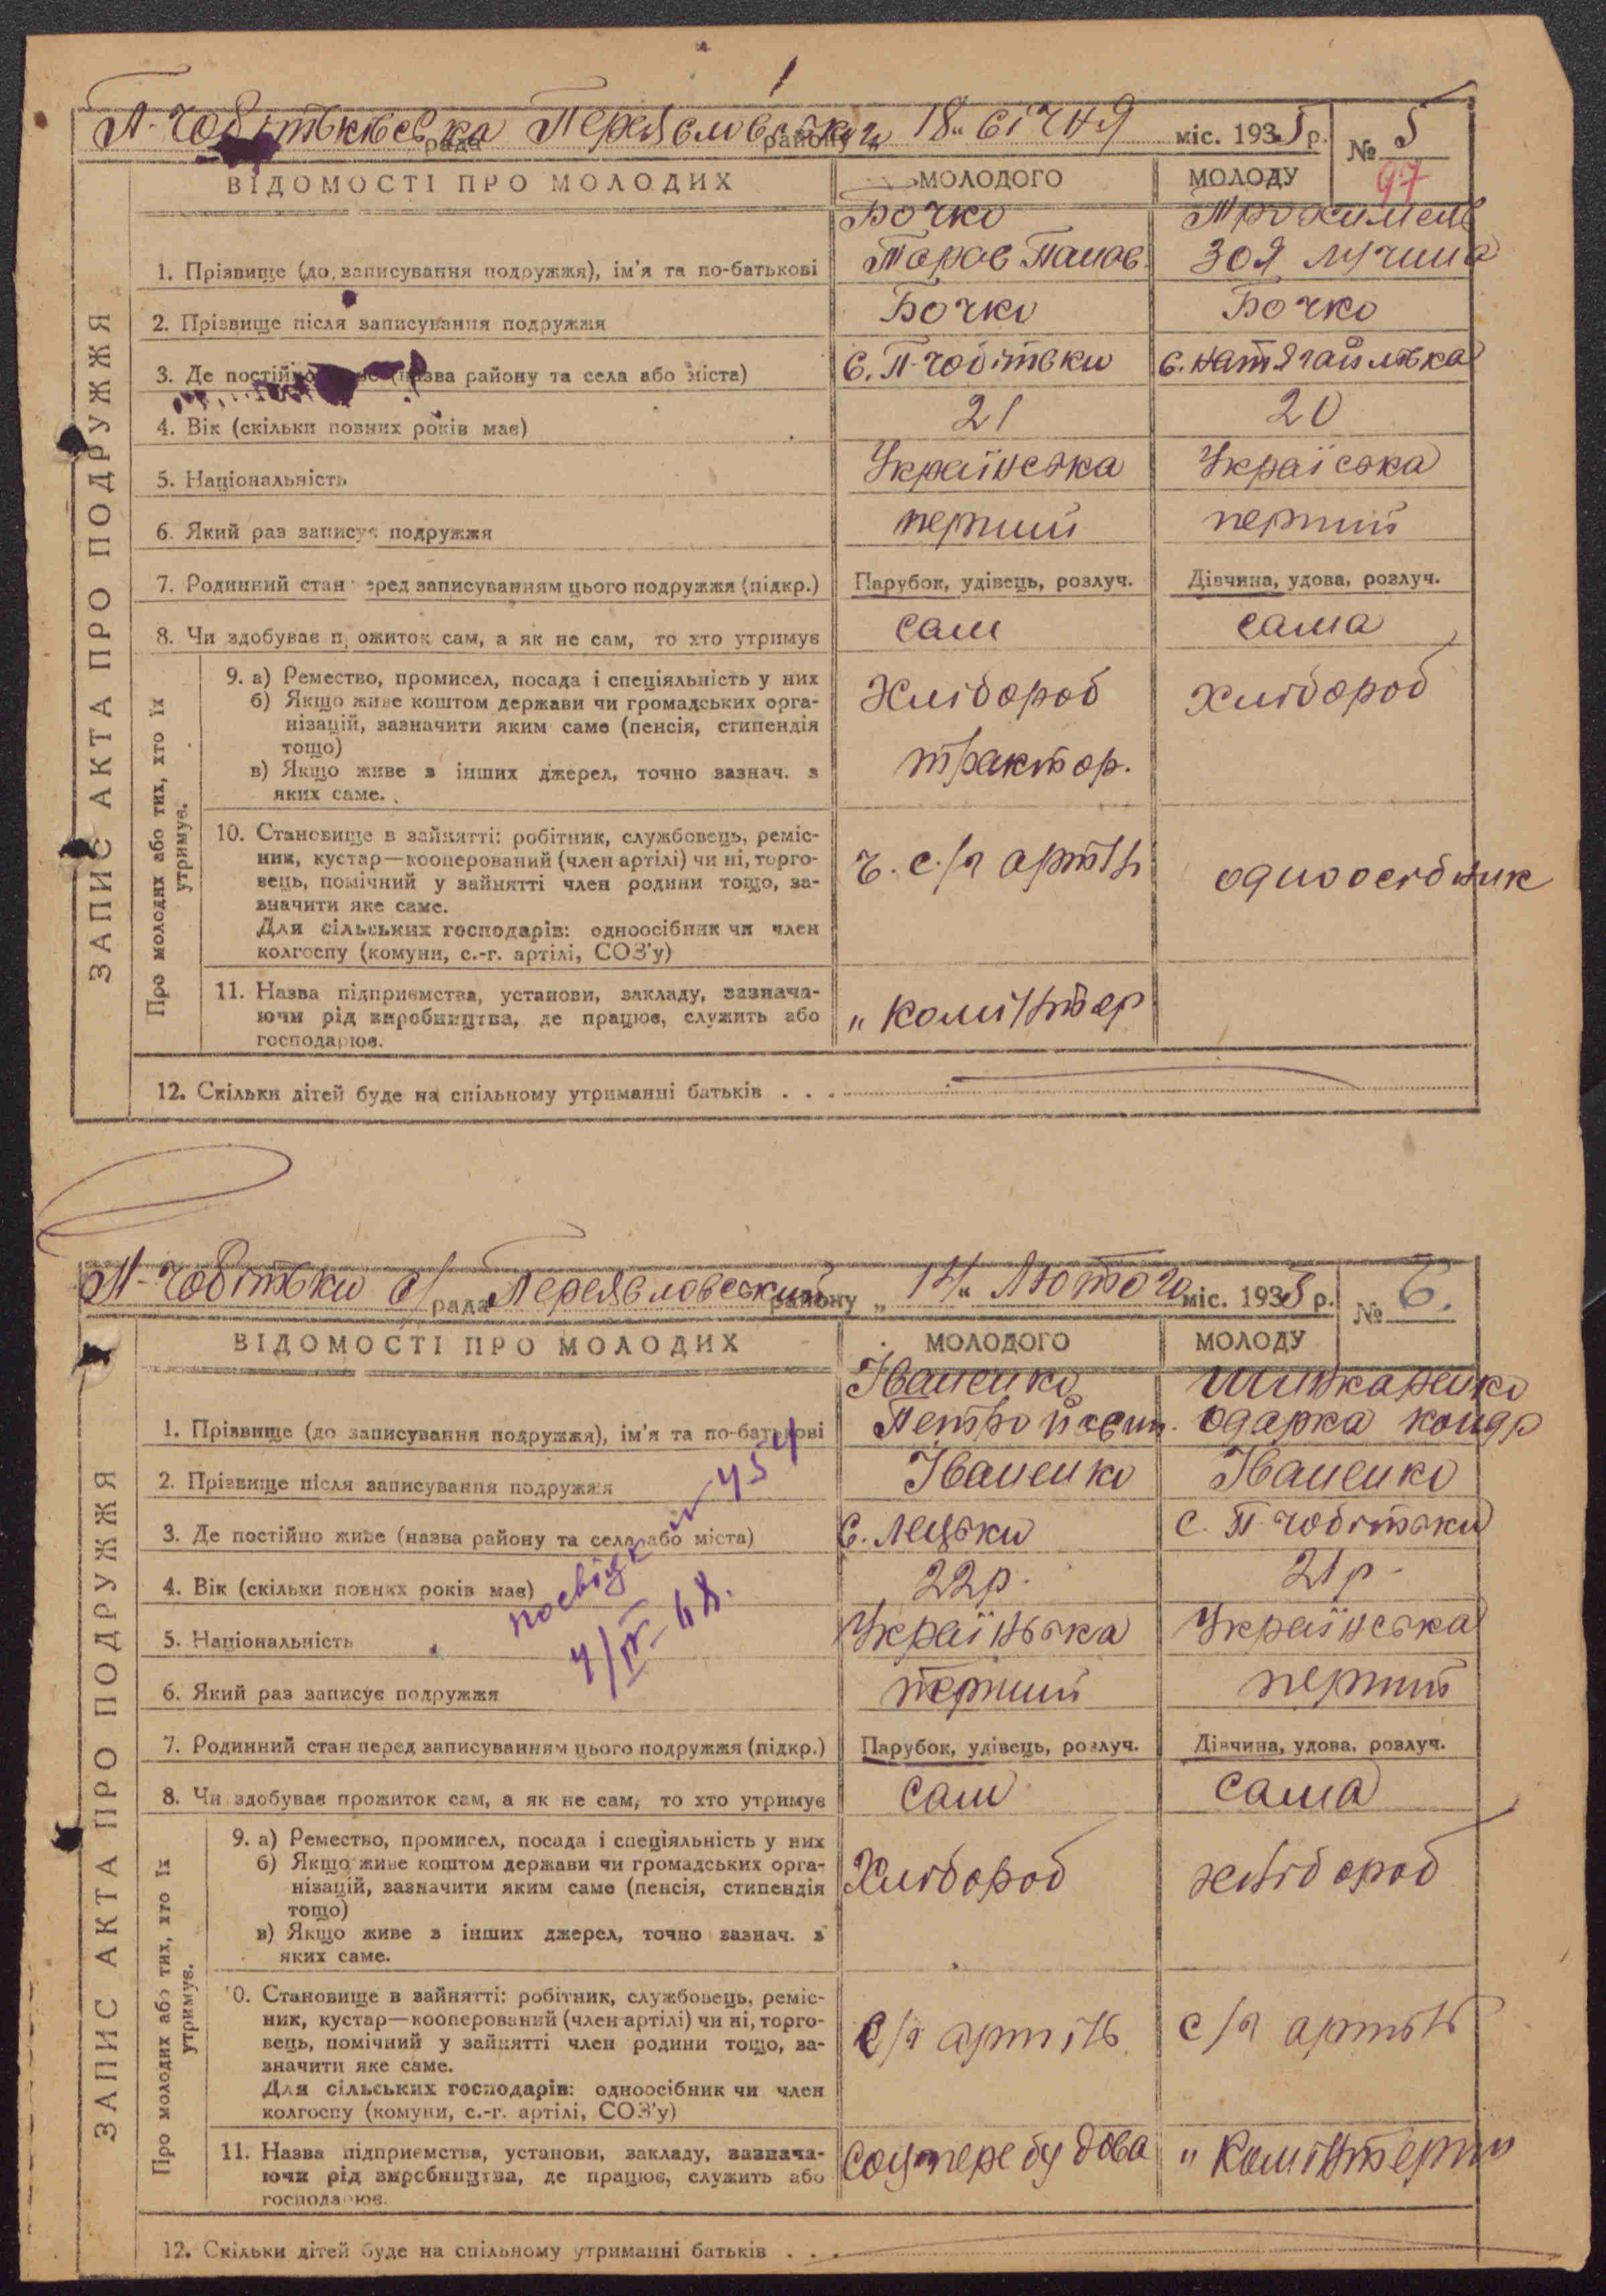 П-Чобітківсвка рада Переяславськог району „18" січня міс. 1935 р. № 5
97
ВІДОМОСТІ ПРО МОЛОДИХ МОЛОДОГО МОЛОДУ
Бочко Трохимець
1. Прізвище (до записування подружжя), ім'я та по-батькові Тарас Панас. Зоя
2. Прізвище після записування подружжя Бочко Бочко
3. Де постійно живе (назва району та села або міста) с. П-Чобітьки с. Натягайлівка
4. Вік (скільки повних років має) 21 20
5. Національність Українська Украіська
6. Який раз записує подружжя перший перший
7. Родинний стан перед записуванням цього подружжя (підкр.) Парубок, удівець, розлуч. Дівчина, удова, розлуч.
8. Чи здобуває прожиток сам, а як не сам, то хто утримує сам сама
9. а) Ремество, промисел, посада і спеціяльність у них Хлібороб хлібороб
б) Якщо живе коштом держави чи громадських орга-
нізацій, зазначити яким саме (пенсія, стипендія
тощо) трактор.
в) Якщо живе з інших джерел, точно зазнач. з
яких саме.
10. Становище в зайнятті: робітник, службовець, реміс-
ник, кустар—кооперований (член артілі) чи ні, торго- ч. с/г артіль одноосібник
вець, помічний у зайнятті член родини тощо, за-
значити яке саме.
Для сільських господарів: одноосібник чи член
колгоспу (комуни, с.-г. артілі, СОЗ'у)
11. Назва підприємства, установи, закладу, зазнача-
ючи рід виробництва, де працює, служить або „Комінтер
господарює.
12. Скільки дітей буде на спільному утриманні батьків . . .
ЗАПИС АКТА ПРО ПОДРУЖЖЯ
Про молодих або тих, хто їх
утримує.
П-Чобітьки с/рада Переяславський району „14" Лютого міс. 1935 р. № 6.
ВІДОМОСТІ ПРО МОЛОДИХ МОЛОДОГО МОЛОДУ
Іваненко Шинкаренко
1. Прізвище (до записування подружжя), ім'я та по-батькові Петро Йосип. Одарка Кондр
2. Прізвище після записування подружжя Іваненко Іваненко
3. Де постійно живе (назва району та села або міста) с. Лецьки с. П-Чобітьки
4. Вік (скільки повних років має) 22р. 21р.
5. Національність Україньська Українська
6. Який раз записує подружжя перший перший
7. Родинний стан перед записуванням цього подружжя (підкр.) Парубок, удівець, розлуч. Дівчина, удова, розлуч.
8. Чи здобуває прожиток сам, а як не сам, то хто утримує сам сама
9. а) Ремество, промисел, посада і спеціяльність у них
б) Якщо живе коштом держави чи громадських орга- Хлібороб хлібороб
нізацій, зазначити яким саме (пенсія, стипендія
тощо)
в) Якщо живе з інших джерел, точно зазнач. з
яких саме.
10. Становище в зайнятті: робітник, службовець, реміс-
ник, кустар—кооперований (член артілі) чи ні, торго- с/г артіль с/г артіль
вець, помічний у зайнятті член родини тощо, за-
значити яке саме.
Для сільських господарів: одноосібник чи член
колгоспу (комуни, с.-г. артілі, СОЗ'у)
11. Назва підприємства, установи, закладу, зазнача- Соцперебудова „Комінтерну
ючи рід виробництва, де працює, служить або
господарює.
12. Скільки дітей буде на спільному утриманні батьків . . .
ЗАПИС АКТА ПРО ПОДРУЖЖЯ
Про молодих або тих, хто їх
утримує.
посвідк
4/IV-68.